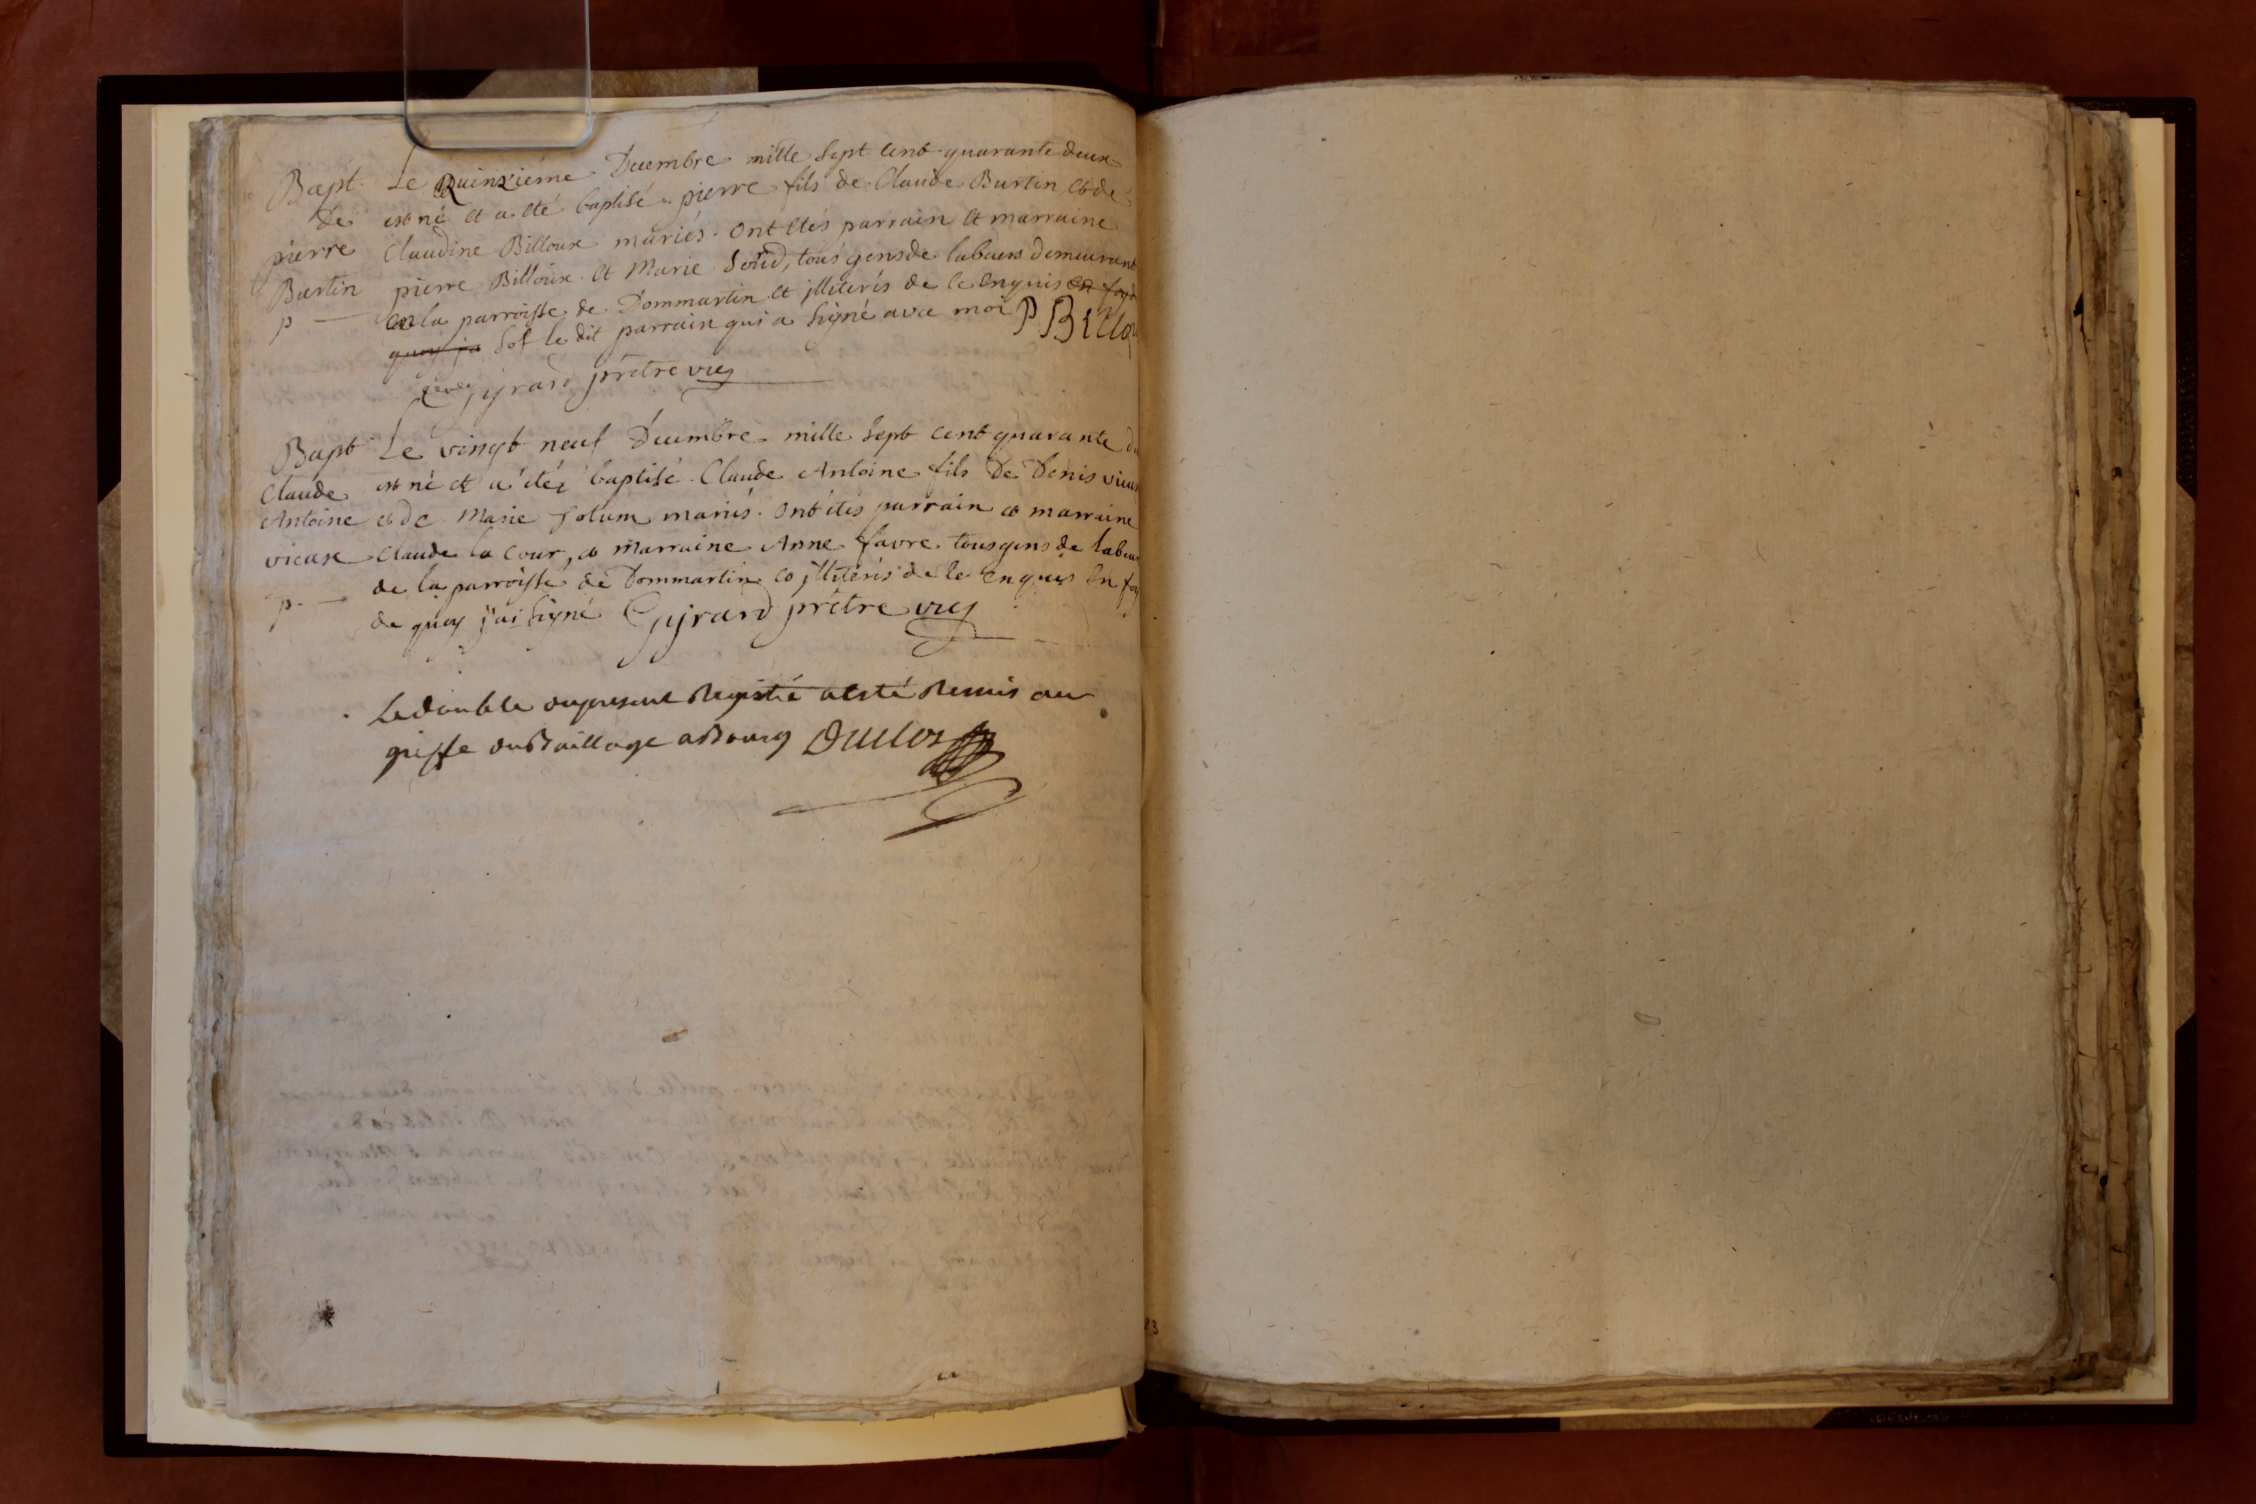 Bapt. Le Quinziéme Decembre mille Sept Cent quarante deux
de est né et a eté baptisé pierre fils de Claude Burtin et de
pierre Claudine Billoux mariés. ont etés parrain et marraine
Burtin pierre Billoux et Marie tous gens de labeurs demeurant
p en la parroisse de Dommartin et jlliterés de ce enquis en foy de
quoy j'a Sof le dit parrain qui a signé avec moi P Billou
Gyrard prêtre vic
Bapt Le vingt neuf Decembre mille Sept cent quarante
Claude est né et a été baptisé Claude Antoine fils De Denis
Antoine et de Marie mariés. ont étés parrain et marraine
vicase Claude la Cour, et Marraine Anne favre tous gens de
de la parroisse de Dommartin et jllitérés de ce enquis En
p. de quoy j'ai signé Gyrard prêtre vic
Le double du present Registre a esté Remis au
greffe du Baillage a Bourg Duclos